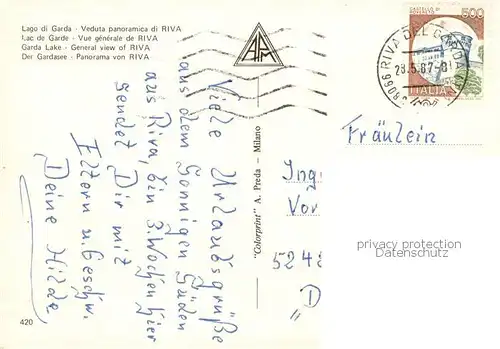 Lago di Garda - Veduta panoramica di RIVA
Lac de Garde - Vue générale de RIVA
Garda Lake - General view of RIVA
Der Gardasee - Panorama von RIVA
AP
Viele Urlaubsgrüße
aus dem Sonnigen Süden
aus Riva, bin 3 Wochen hier
sendet Dir mit
Eltern u. Geschw.
Deine Hilde
420
"Colorprint" A. Preda - Milano
500
ITALIA
38066 RIVA DEL GARDA
23.5.87-8
Fräulein
Ing
Vor
524
D
privacy protection
Datenschutz